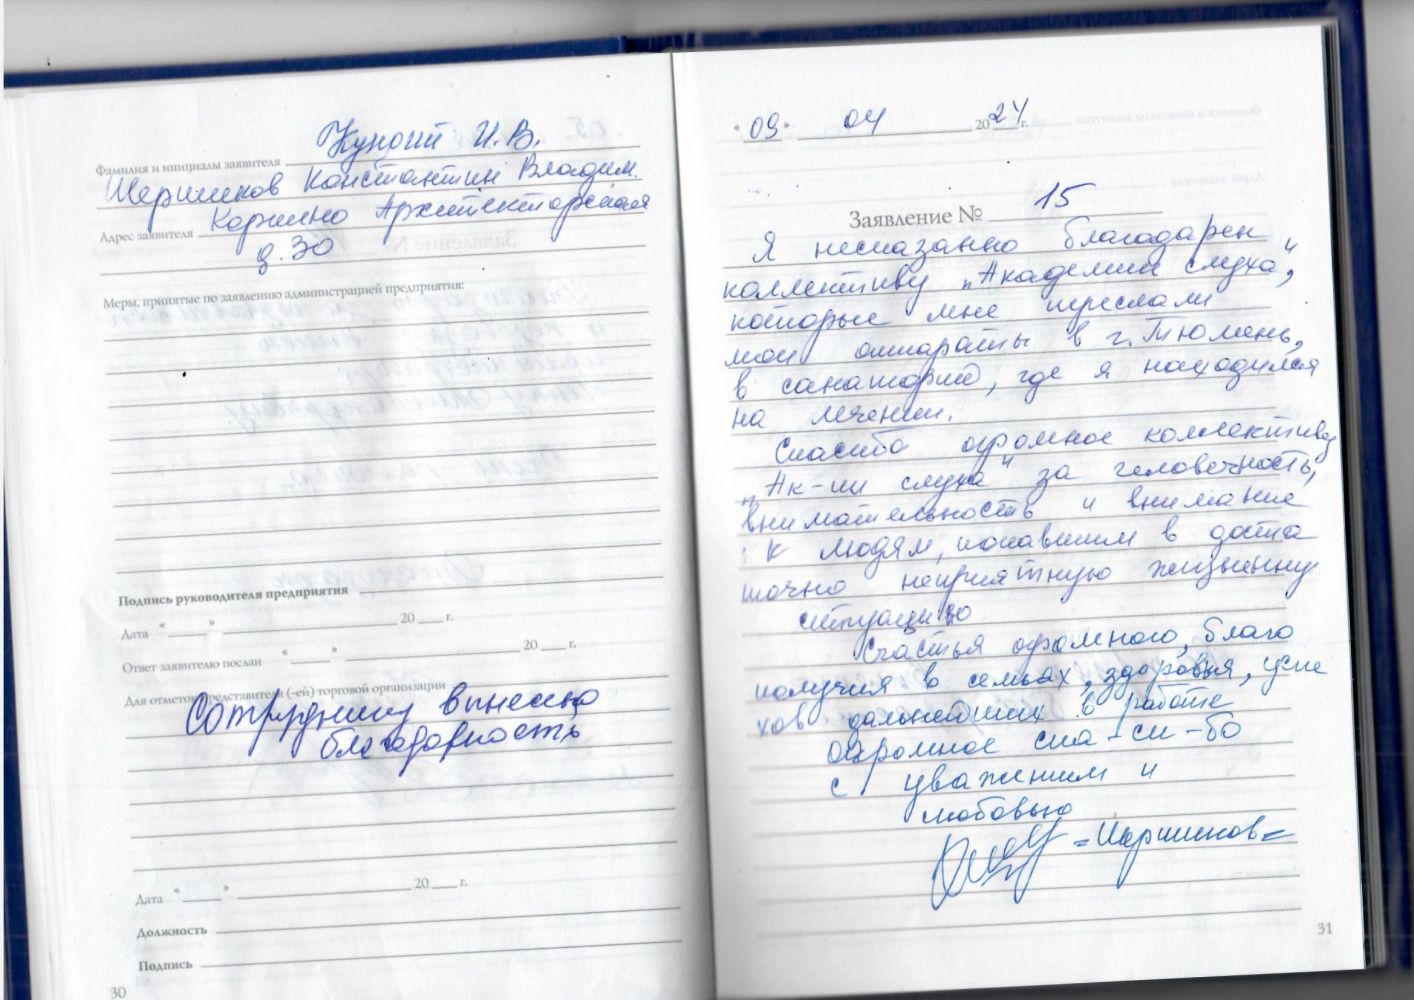 Фамилия и инициалы заявителя Кунгий И.В.
Шершиков Константин Владим.
Адрес заявителя Коркино Архитекторская
д.30
Меры, принятые по заявлению администрацией предприятия:
Подпись руководителя предприятия
Дата " " 20 г.
Ответ заявителю послан " " 20 г.
Для отметок представителя (-ей) торговой организации
Сотруднику вынесено
благодарность
Дата " " 20 г.
Должность
Подпись
30
"09" 04 2024г.
Заявление № 15
Я несказанно благодарен
коллективу „Академии слуха",
которые мне переслали
мои аппараты в г. Тюмень,
в санаторий, где я находился
на лечении.
Спасибо огромное коллективу
„Ак-ии слуха" за человечность,
внимательность и внимание
к людям, попавшим в доста
точно неприятную жизненну
ситуацию
Счастья огромного, благо
получия в семьях, здоровья, успе
хов дальнейших в работе
Огромное спа-си-бо
с уважением и
любовью
=Шершиков=
31